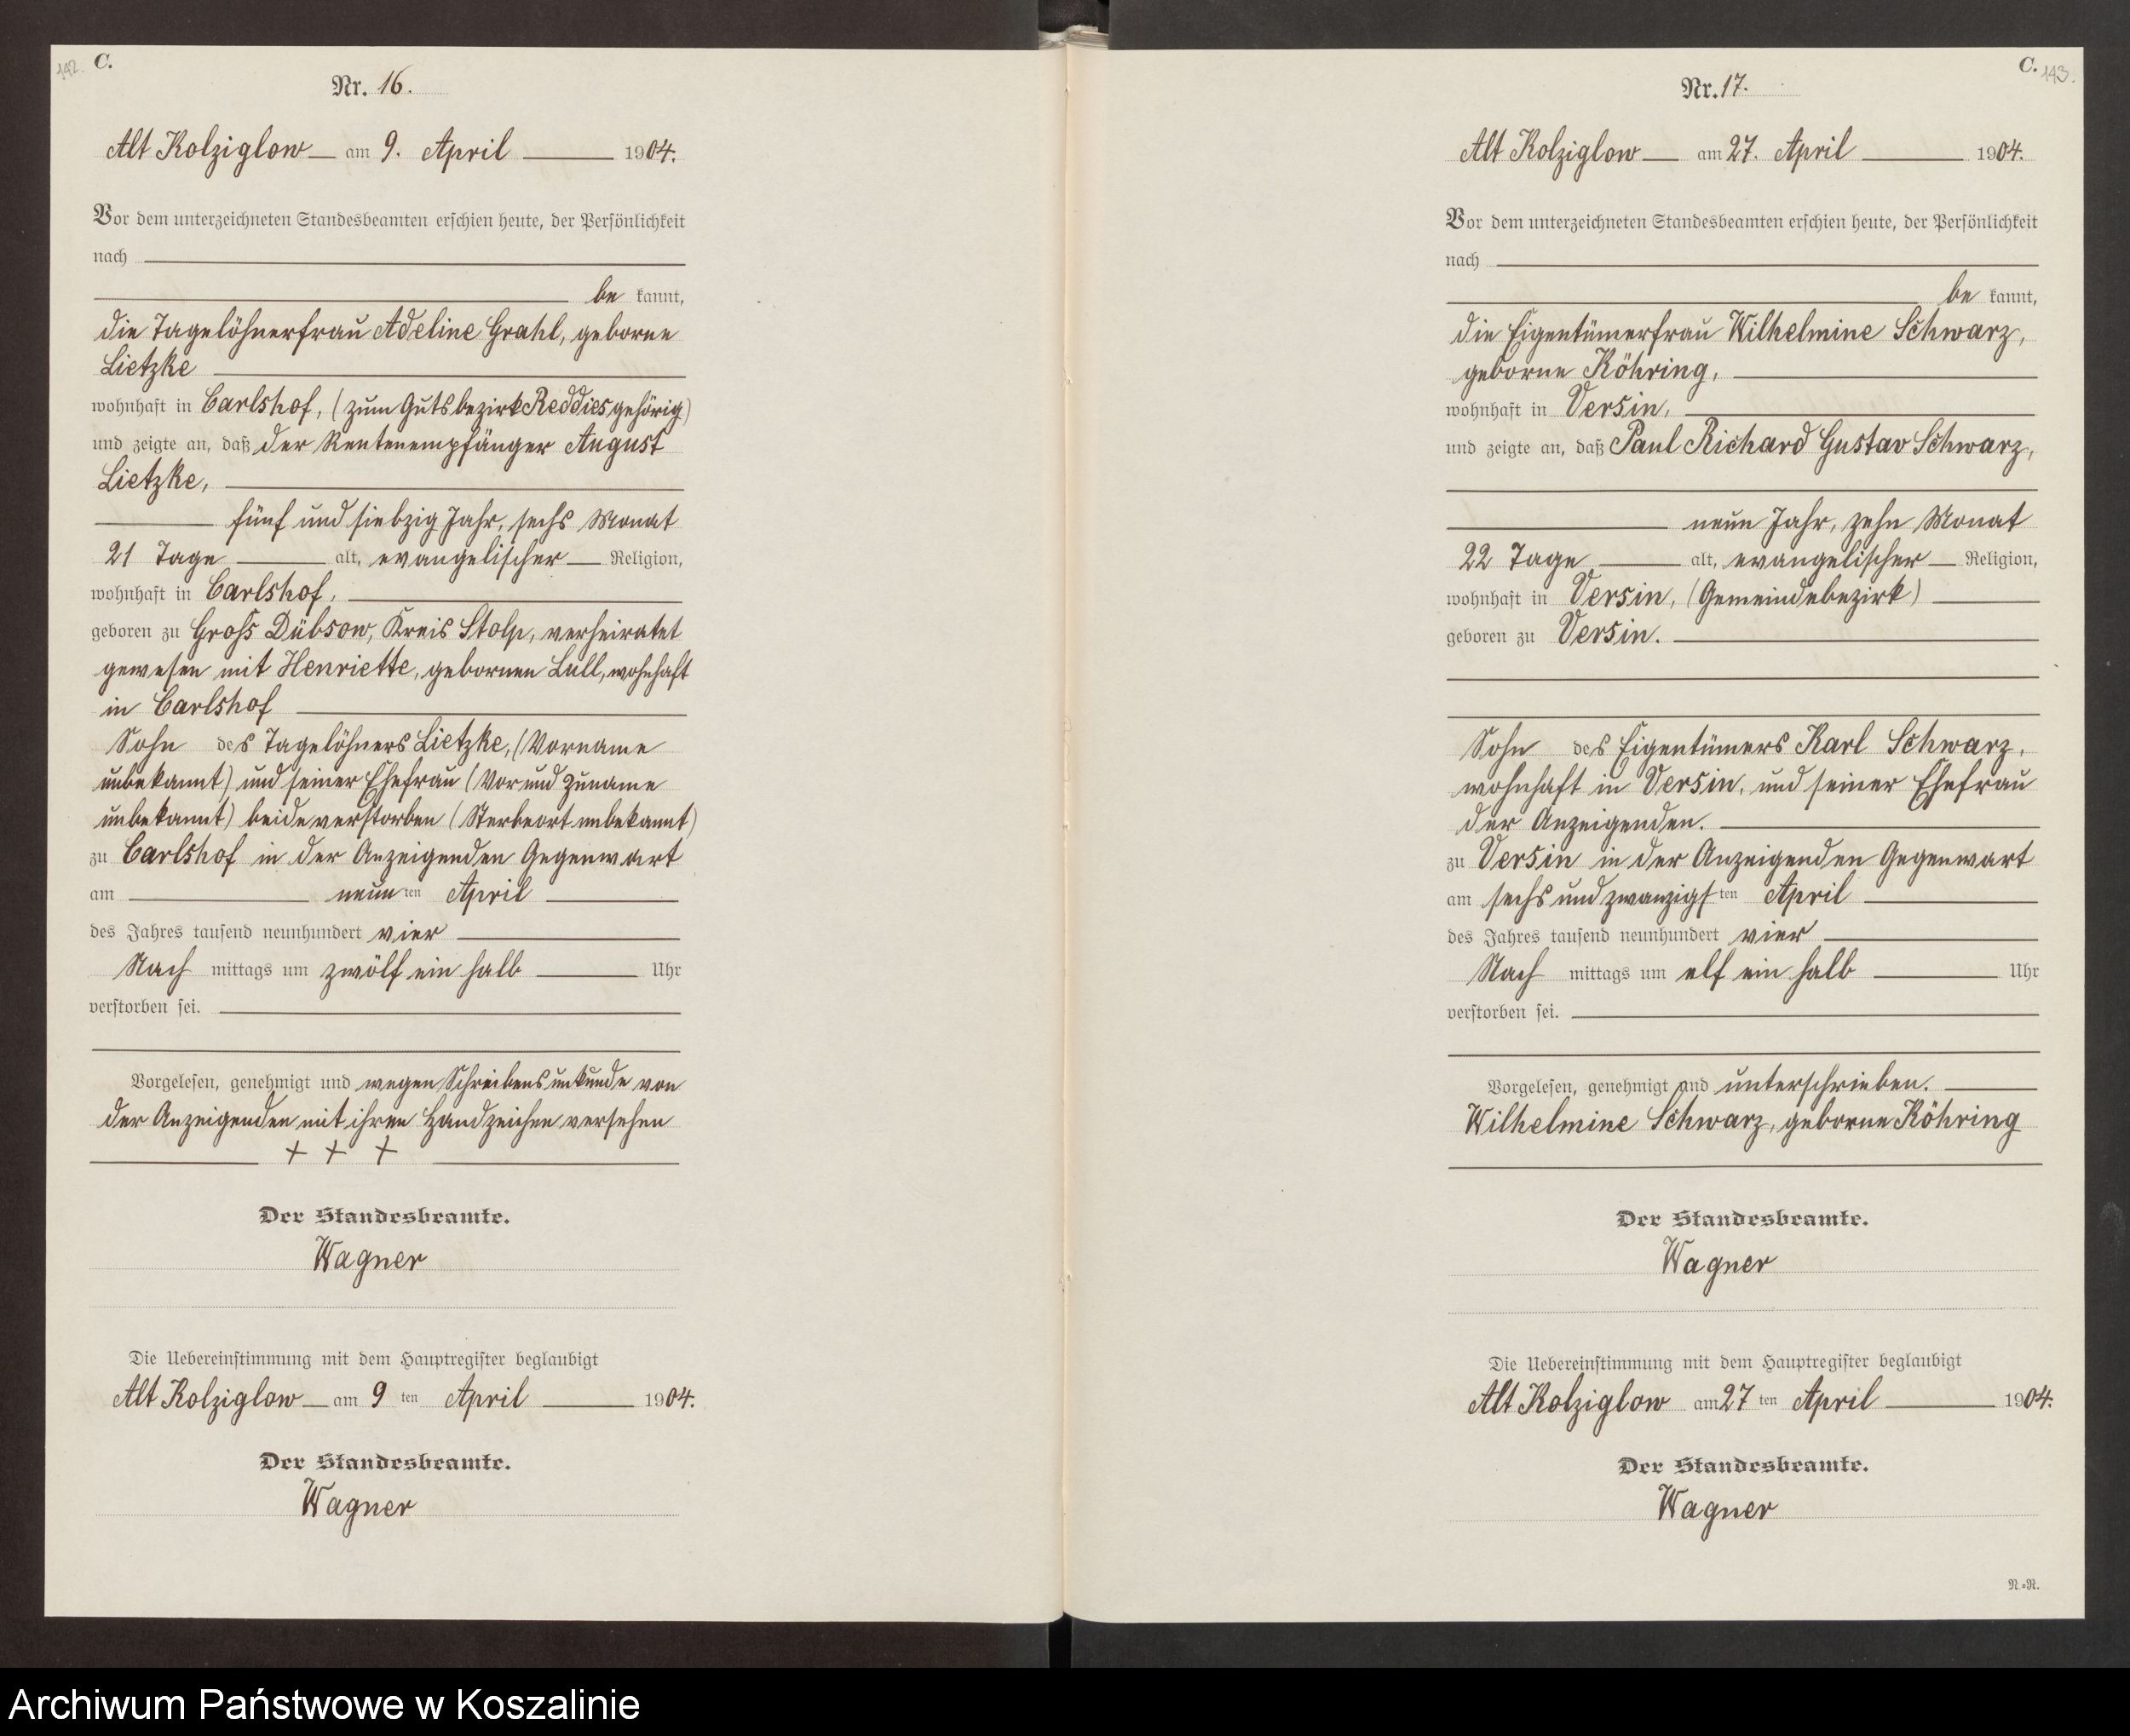 142.
C.
Nr. 16.
Alt Kolziglow am 9. April 1904.
Vor dem unterzeichneten Standesbeamten erschien heute, der Persönlichkeit
nach
be kannt,
die Tagelöhnerfrau Adeline Grahl, geborne
Lietzke
wohnhaft in Carlshof, (zum Gutsbezirk Reddies gehörig)
und zeigte an, daß der Rentenempfänger August
Lietzke,
fünf und siebzig Jahr, sechs Monat
21 Tage alt, evangelischer Religion,
wohnhaft in Carlshof,
geboren zu Groß Dübsow, Kreis Stolp, verheiratet
gewesen mit Henriette, gebornen Lull, wohnhaft
in Carlshof
Sohn des Tagelöhners Lietzke, (Vorname
unbekannt) und seiner Ehefrau (Vor und Zuname
unbekannt) beide verstorben (Sterbeort unbekannt)
zu Carlshof in der Anzeigenden Gegenwart
am neun ten April
des Jahres tausend neunhundert vier
Nach mittags um zwölf ein halb Uhr
verstorben sei.
Vorgelesen, genehmigt und wegen Schreibensunkunde von
der Anzeigenden mit ihren Handzeichen versehen
+ + +
Der Standesbeamte.
Wagner
Die Uebereinstimmung mit dem Hauptregister beglaubigt
Alt Kolziglow am 9 ten April 1904.
Der Standesbeamte.
Wagner
C.
143.
Nr. 17.
Alt Kolziglow am 27. April 1904.
Vor dem unterzeichneten Standesbeamten erschien heute, der Persönlichkeit
nach
be kannt,
die Eigentümerfrau Wilhelmine Schwarz,
geborne Röhring,
wohnhaft in Versin,
und zeigte an, daß Paul Richard Gustav Schwarz,
neun Jahr, zehn Monat
22 Tage alt, evangelischer Religion,
wohnhaft in Versin, (Gemeindebezirk)
geboren zu Versin.
Sohn des Eigentümers Karl Schwarz,
wohnhaft in Versin, und seiner Ehefrau
der Anzeigenden.
zu Versin in der Anzeigenden Gegenwart
am sechs und zwanzigs ten April
des Jahres tausend neunhundert vier
Nach mittags um elf ein halb Uhr
verstorben sei.
Vorgelesen, genehmigt und unterschrieben.
Wilhelmine Schwarz, geborne Röhring
Der Standesbeamte.
Wagner
Die Uebereinstimmung mit dem Hauptregister beglaubigt
Alt Kolziglow am 27 ten April 1904.
Der Standesbeamte.
Wagner
N.=R.
Archiwum Państwowe w Koszalinie